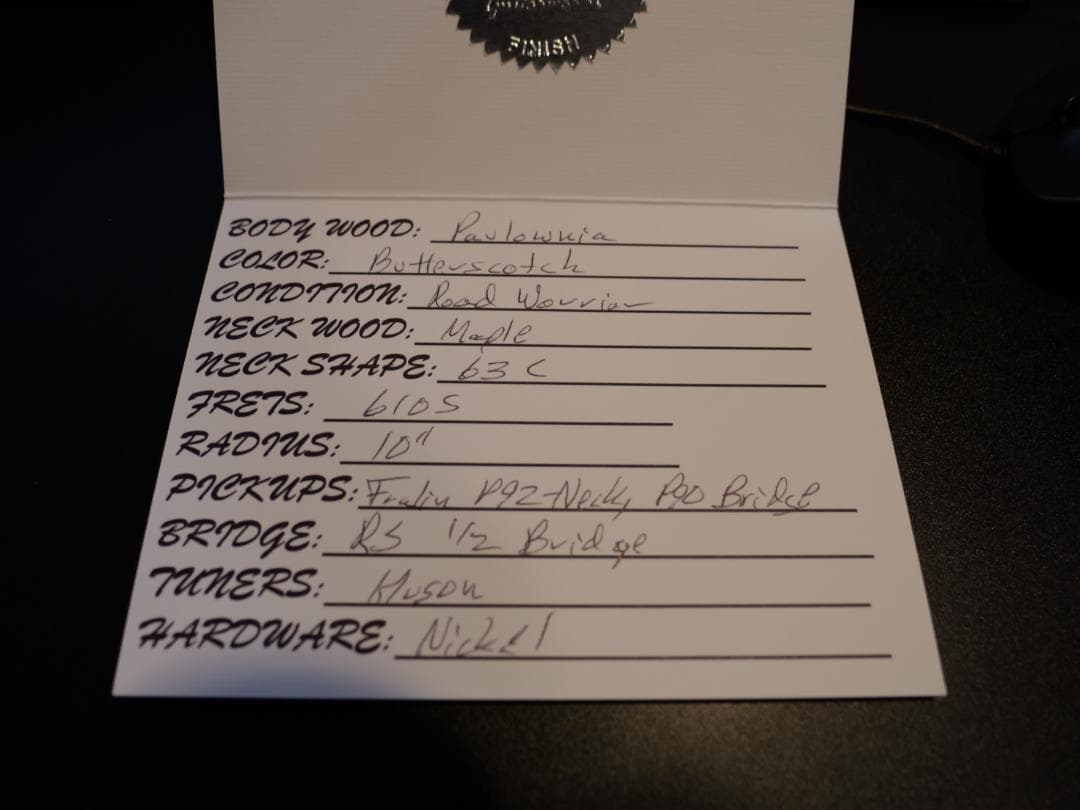 FINISH
BODY WOOD: Paulownia
COLOR: Butterscotch
CONDITION: Road Worrior
NECK WOOD: Maple
NECK SHAPE: 63 C
FRETS: 6105
RADIUS: 10"
PICKUPS: Fralin P92-Neck, P90 Bridge
BRIDGE: RS 1/2 Bridge
TUNERS: Kluson
HARDWARE: Nickel